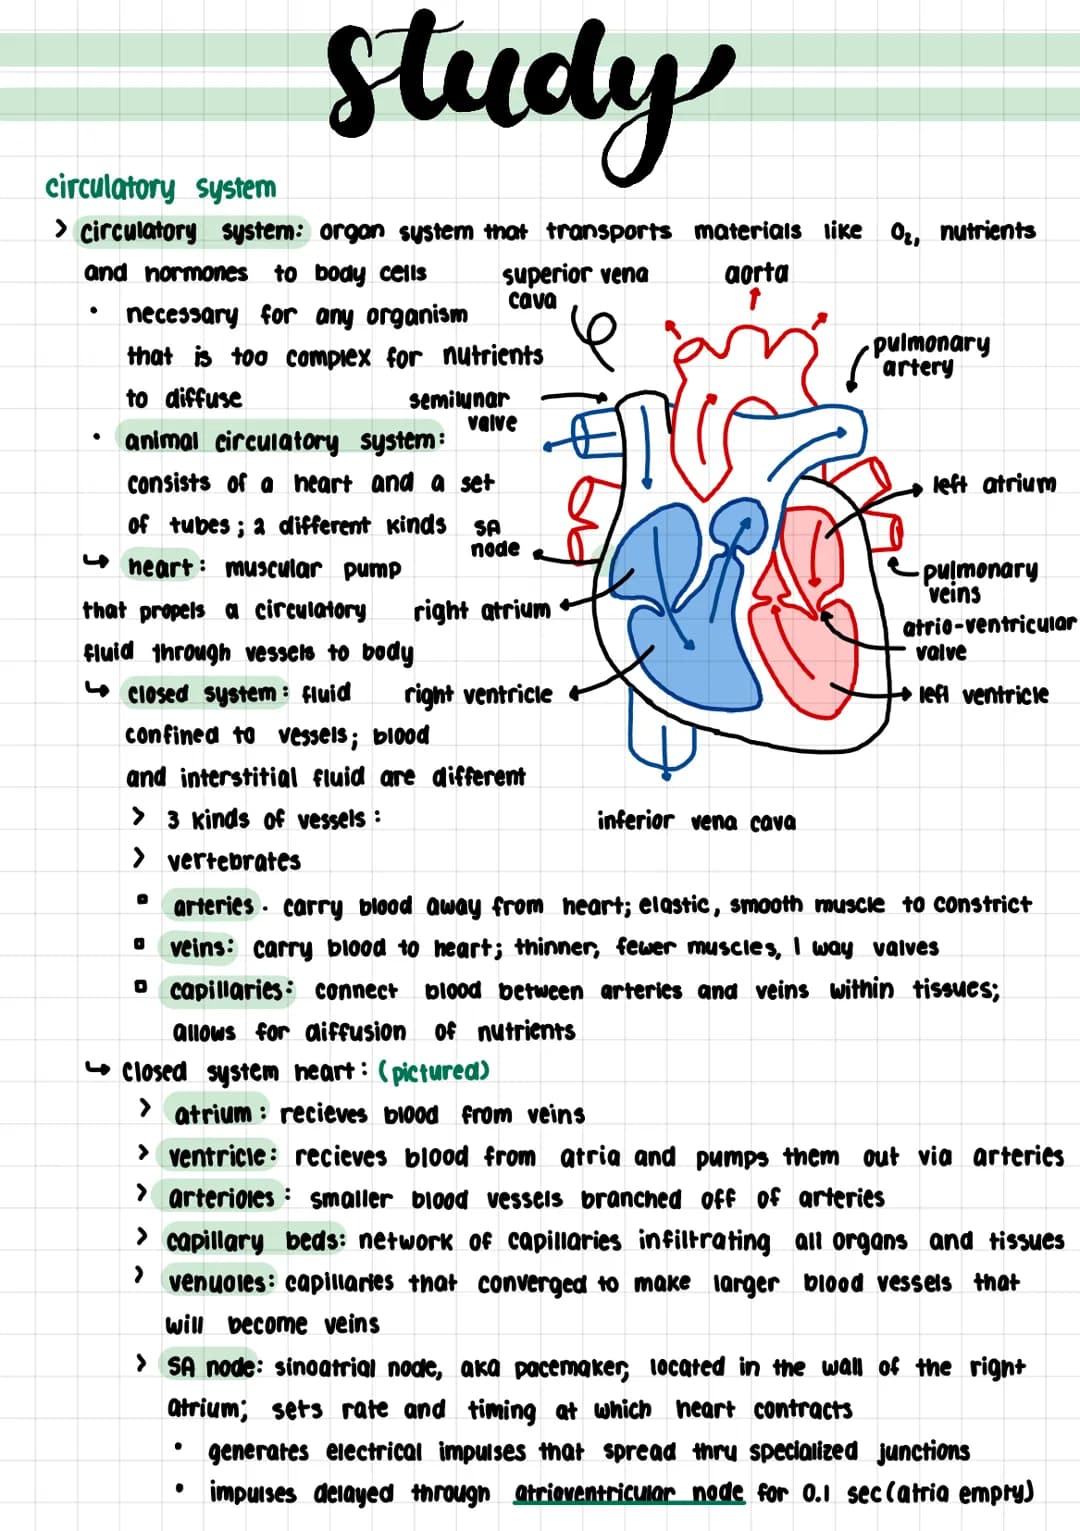 study
circulatory system
> circulatory system: organ system that transports materials like O₂, nutrients
and hormones to body cells
superior vena
cava
aorta
• necessary for any organism
that is too complex for nutrients
to diffuse
pulmonary
artery
semilunar
valve
• animal circulatory system:
consists of a heart and a set
of tubes; 2 different kinds
SA
node
left atrium
↳ heart: muscular pump
that propels a circulatory
fluid through vessels to body
right atrium
pulmonary
veins
atrio-ventricular
valve
↳ closed system: fluid
confined to vessels; blood
and interstitial fluid are different
right ventricle
left ventricle
> 3 kinds of vessels:
inferior vena cava
> vertebrates
▫ arteries. carry blood away from heart; elastic, smooth muscle to constrict
▫ veins: carry blood to heart; thinner, fewer muscles, 1 way valves
▫ capillaries: connect blood between arteries and veins within tissues;
allows for diffusion of nutrients
↳ closed system heart: (pictured)
> atrium: recieves blood from veins
> ventricle: recieves blood from atria and pumps them out via arteries
> arterioles: smaller blood vessels branched off of arteries
> capillary beds: network of capillaries infiltrating all organs and tissues
> venuoles: capillaries that converged to make larger blood vessels that
will become veins
> SA node: sinoatrial node, aka pacemaker, located in the wall of the right
atrium; sets rate and timing at which heart contracts
• generates electrical impulses that spread thru specialized junctions
• impulses delayed through atrioventricular node for 0.1 sec (atria empty)